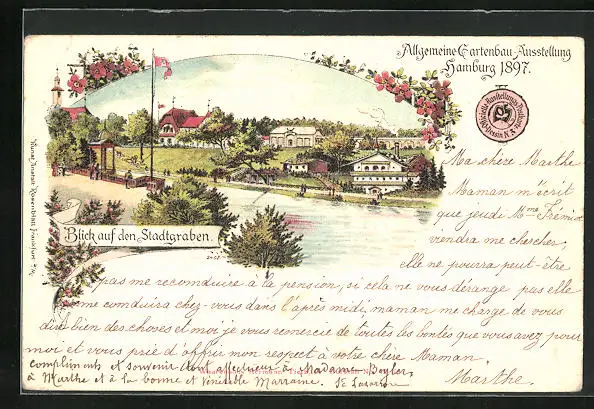 Allgemeine Gartenbau-Ausstellung
Hamburg 1897.
Blick auf den Stadtgraben.
Ma chère Marthe
Maman m'écrit
que jeudi Mme
viendra me chercher,
elle ne pourra peut-être
pas me reconduire à la pension, si cela ne vous dérange pas elle
me conduira chez-vous dans l'après midi, maman me charge de vous
dire bien des choses et moi je vous remercie de toutes les bontés que vous avez pour
moi et vous prie d'offrir mon respect à votre chère Maman.
Marthe.
compliments et souvenir à Madame
à Marthe et à la bonne et vénérable Marraine.